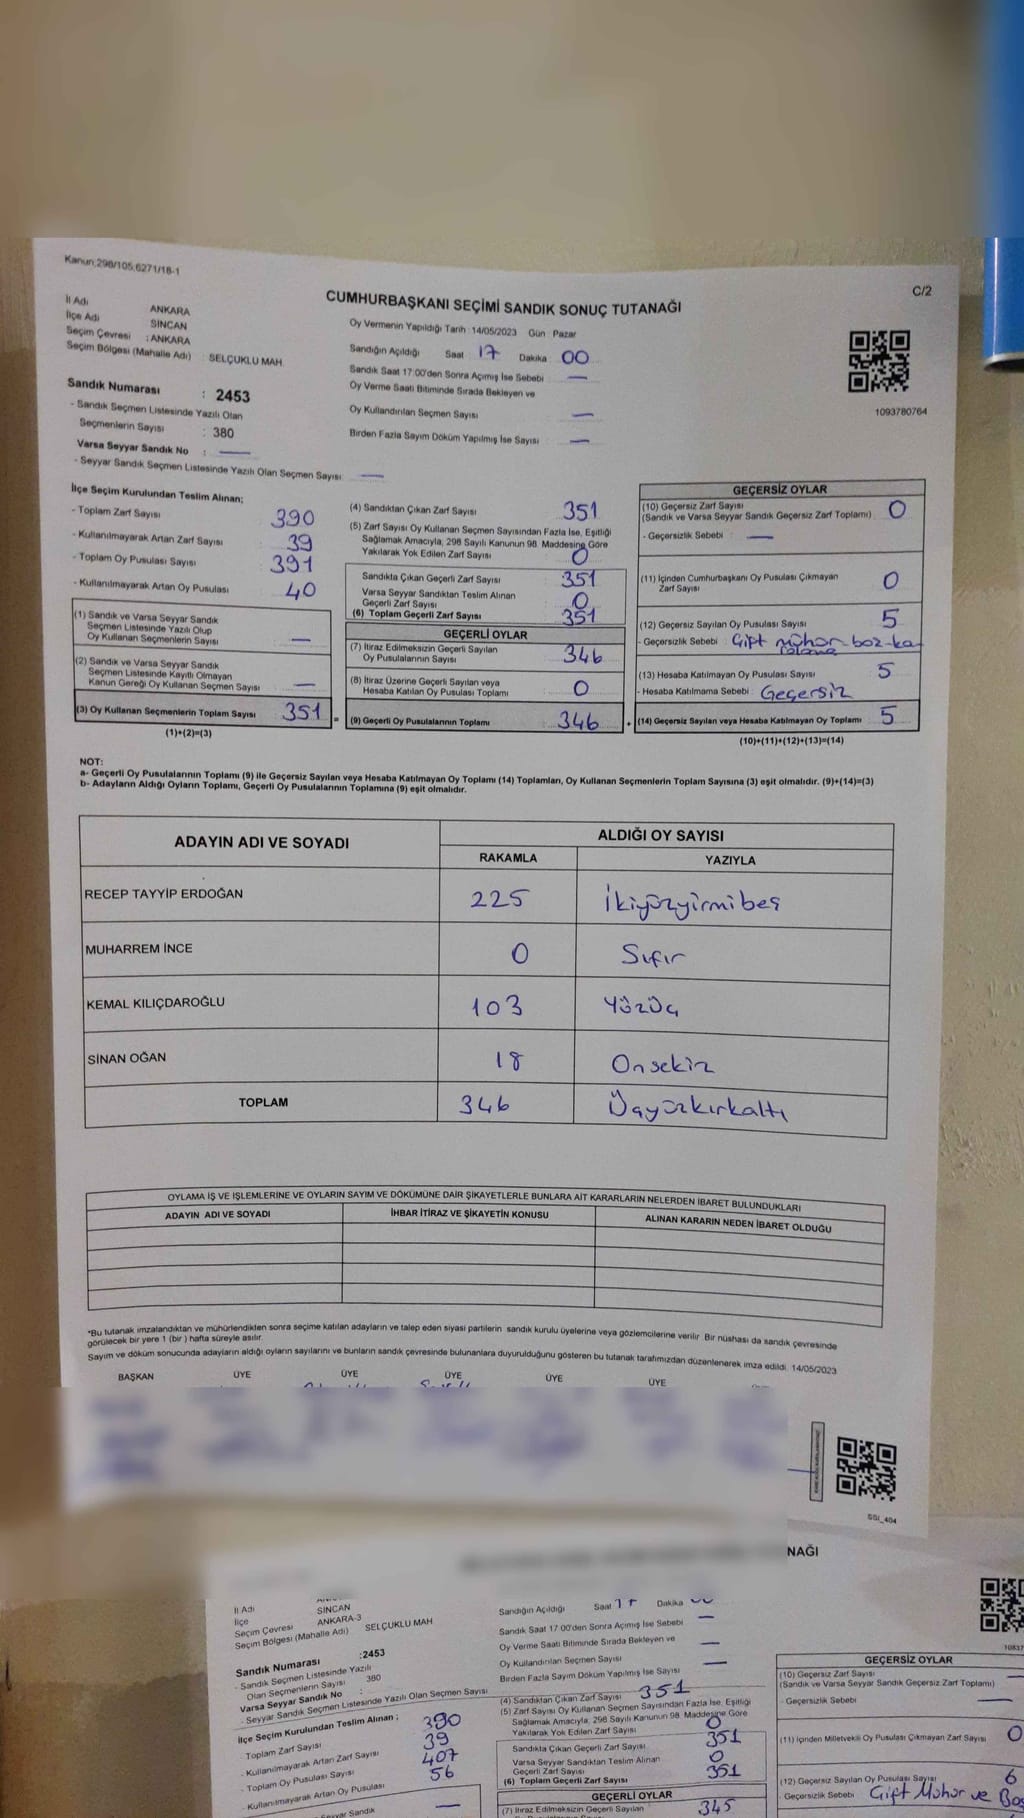 Kanun:298/105,6271/18-1
C/2
CUMHURBAŞKANI SEÇİMİ SANDIK SONUÇ TUTANAĞI
İl Adı ANKARA
İlçe Adı SİNCAN
Seçim Çevresi : ANKARA
Seçim Bölgesi (Mahalle Adı) : SELÇUKLU MAH.
Oy Vermenin Yapıldığı Tarih :14/05/2023 Gün : Pazar
Sandığın Açıldığı Saat 17 Dakika 00
Sandık Saat 17:00'den Sonra Açımış İse Sebebi —
Oy Verme Saati Bitiminde Sırada Bekleyen ve
Oy Kullandırılan Seçmen Sayısı —
Birden Fazla Sayım Döküm Yapılmış İse Sayısı —
1093780764
Sandık Numarası : 2453
- Sandık Seçmen Listesinde Yazılı Olan
Seçmenlerin Sayısı : 380
Varsa Seyyar Sandık No : —
- Seyyar Sandık Seçmen Listesinde Yazılı Olan Seçmen Sayısı —
İlçe Seçim Kurulundan Teslim Alınan;
- Toplam Zarf Sayısı 390
- Kullanılmayarak Artan Zarf Sayısı 39
- Toplam Oy Pusulası Sayısı 391
- Kullanılmayarak Artan Oy Pusulası 40
(1) Sandık ve Varsa Seyyar Sandık
Seçmen Listesinde Yazılı Olup
Oy Kullanan Seçmenlerin Sayısı —
(2) Sandık ve Varsa Seyyar Sandık
Seçmen Listesinde Kayıtlı Olmayan
Kanun Gereği Oy Kullanan Seçmen Sayısı —
(3) Oy Kullanan Seçmenlerin Toplam Sayısı 351 =
(1)+(2)=(3)
(4) Sandıktan Çıkan Zarf Sayısı 351
(5) Zarf Sayısı Oy Kullanan Seçmen Sayısından Fazla İse, Eşitliği
Sağlamak Amacıyla, 298 Sayılı Kanunun 98. Maddesine Göre
Yakılarak Yok Edilen Zarf Sayısı 0
Sandıkta Çıkan Geçerli Zarf Sayısı 351
Varsa Seyyar Sandıktan Teslim Alınan
Geçerli Zarf Sayısı 0
(6) Toplam Geçerli Zarf Sayısı 351
GEÇERLİ OYLAR
(7) İtiraz Edilmeksizin Geçerli Sayılan
Oy Pusulalarının Sayısı 346
(8) İtiraz Üzerine Geçerli Sayılan veya
Hesaba Katılan Oy Pusulası Toplamı 0
(9) Geçerli Oy Pusulalarının Toplamı 346 +
GEÇERSİZ OYLAR
(10) Geçersiz Zarf Sayısı 0
(Sandık ve Varsa Seyyar Sandık Geçersiz Zarf Toplamı)
- Geçersizlik Sebebi : —
(11) İçinden Cumhurbaşkanı Oy Pusulası Çıkmayan
Zarf Sayısı 0
(12) Geçersiz Sayılan Oy Pusulası Sayısı 5
- Geçersizlik Sebebi : Çift mühür
(13) Hesaba Katılmayan Oy Pusulası Sayısı 5
- Hesaba Katılmama Sebebi : Geçersiz
(14) Geçersiz Sayılan veya Hesaba Katılmayan Oy Toplamı 5
(10)+(11)+(12)+(13)=(14)
NOT:
a- Geçerli Oy Pusulalarının Toplamı (9) ile Geçersiz Sayılan veya Hesaba Katılmayan Oy Toplamı (14) Toplamları, Oy Kullanan Seçmenlerin Toplam Sayısına (3) eşit olmalıdır. (9)+(14)=(3)
b- Adayların Aldığı Oyların Toplamı, Geçerli Oy Pusulalarının Toplamına (9) eşit olmalıdır.
ADAYIN ADI VE SOYADI
ALDIĞI OY SAYISI
RAKAMLA YAZIYLA
RECEP TAYYİP ERDOĞAN 225 İkiyüzyirmibeş
MUHARREM İNCE 0 Sıfır
KEMAL KILIÇDAROĞLU 103 Yüzüç
SİNAN OĞAN 18 Onsekiz
TOPLAM 346 Üçyüzkırkaltı
OYLAMA İŞ VE İŞLEMLERİNE VE OYLARIN SAYIM VE DÖKÜMÜNE DAİR ŞİKAYETLERLE BUNLARA AİT KARARLARIN NELERDEN İBARET BULUNDUKLARI
ADAYIN ADI VE SOYADI İHBAR İTİRAZ VE ŞİKAYETİN KONUSU ALINAN KARARIN NEDEN İBARET OLDUĞU
*Bu tutanak imzalandıktan ve mühürlendikten sonra seçime katılan adayların ve talep eden siyasi partilerin sandık kurulu üyelerine veya gözlemcilerine verilir. Bir nüshası da sandık çevresinde
görülecek bir yere 1 (bir) hafta süreyle asılır.
Sayım ve döküm sonucunda adayların aldığı oyların sayılarını ve bunların sandık çevresinde bulunanlara duyurulduğunu gösteren bu tutanak tarafımızdan düzenlenerek imza edildi. 14/05/2023
BAŞKAN ÜYE ÜYE ÜYE ÜYE ÜYE
SSI_404
NAĞI
İl Adı
İlçe SİNCAN
Seçim Çevresi ANKARA-3
Seçim Bölgesi (Mahalle Adı) SELÇUKLU MAH
Sandığın Açıldığı Saat 17 Dakika
Sandık Saat 17:00'den Sonra Açımış İse Sebebi —
Oy Verme Saati Bitiminde Sırada Bekleyen ve
Oy Kullandırılan Seçmen Sayısı —
Birden Fazla Sayım Döküm Yapılmış İse Sayısı —
Sandık Numarası :2453
- Sandık Seçmen Listesinde Yazılı
Olan Seçmenlerin Sayısı 380
Varsa Seyyar Sandık No :
- Seyyar Sandık Seçmen Listesinde Yazılı Olan Seçmen Sayısı
İlçe Seçim Kurulundan Teslim Alınan ;
- Toplam Zarf Sayısı 390
- Kullanılmayarak Artan Zarf Sayısı 39
- Toplam Oy Pusulası Sayısı 407
- Kullanılmayarak Artan Oy Pusulası 56
(4) Sandıktan Çıkan Zarf Sayısı 351
(5) Zarf Sayısı Oy Kullanan Seçmen Sayısından Fazla İse, Eşitliği
Sağlamak Amacıyla, 298 Sayılı Kanunun 98. Maddesine Göre
Yakılarak Yok Edilen Zarf Sayısı 0
Sandıkta Çıkan Geçerli Zarf Sayısı 351
Varsa Seyyar Sandıktan Teslim Alınan
Geçerli Zarf Sayısı 0
(6) Toplam Geçerli Zarf Sayısı 351
GEÇERLİ OYLAR
(7) İtiraz Edilmeksizin Geçerli Sayılan 345
GEÇERSİZ OYLAR
(10) Geçersiz Zarf Sayısı —
(Sandık ve Varsa Seyyar Sandık Geçersiz Zarf Toplamı)
- Geçersizlik Sebebi —
(11) İçinden Milletvekili Oy Pusulası Çıkmayan Zarf Sayısı 0
(12) Geçersiz Sayılan Oy Pusulası Sayısı 6
- Geçersizlik Sebebi : Çift Mühür ve